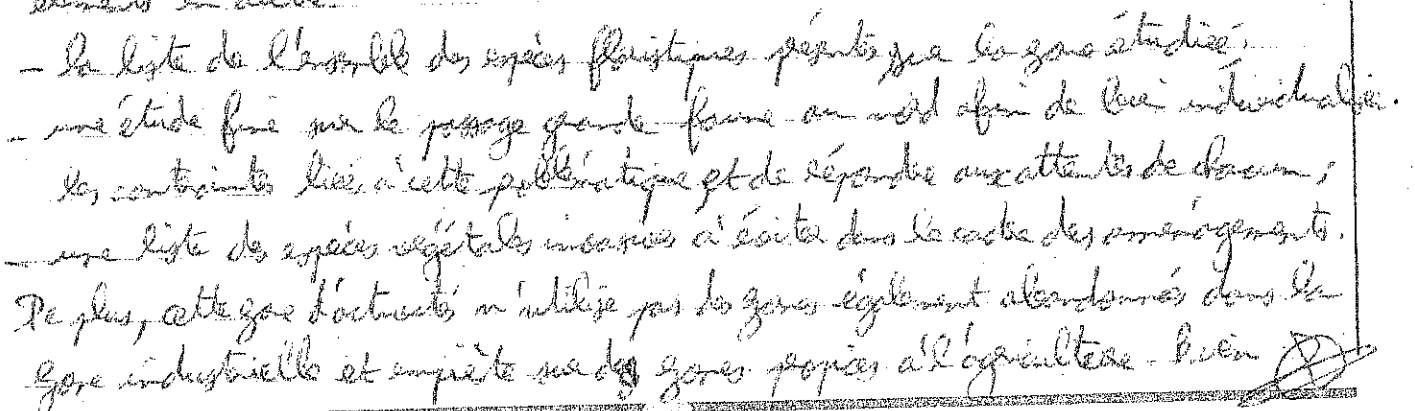 - la liste de l'ensemble des espèces floristiques présentes sur la zone étudiée.
- une étude fine sur le passage grande faune au nord afin de individualiser
les contraintes liées à cette problématique et de répondre aux attentes de chacun ;
- une liste des espèces végétales invasives à éviter dans le cadre des aménagements.
De plus, cette zone d'activités n'utilise pas des zones également abandonnées dans la
zone industrielle et empiète sur des zones propices à l'agriculture.